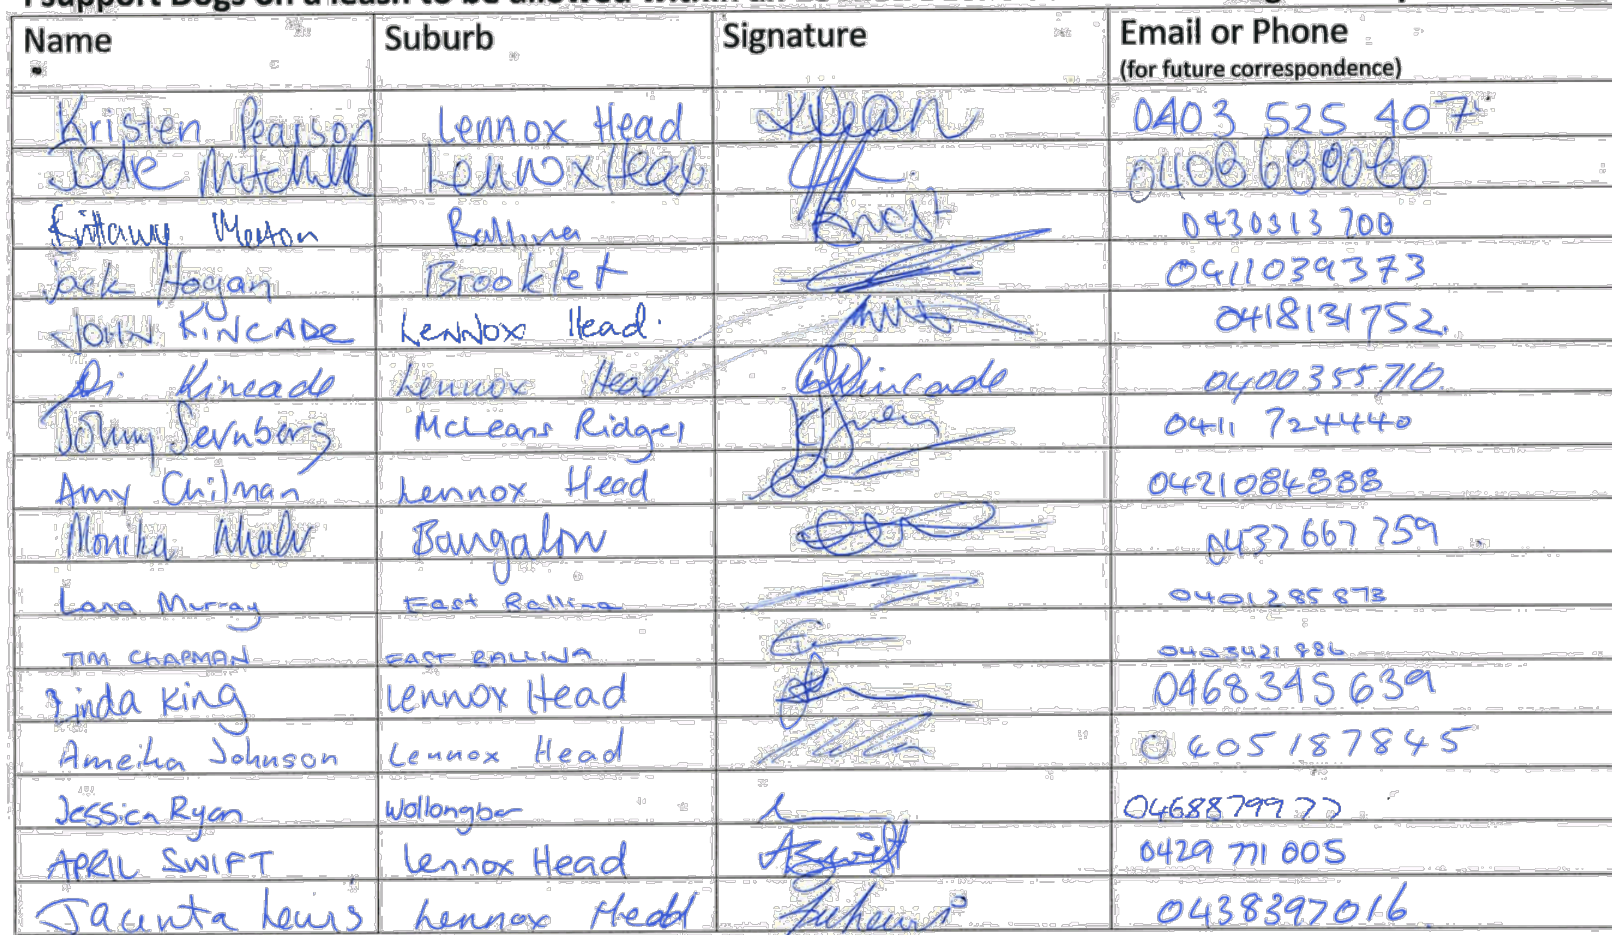 I support Dogs on a leash to be allowed within
Name Suburb Signature Email or Phone
(for future correspondence)
Kristen Pearson Lennox Head 0403 525 407
Jode Mitchell Lennox Head
Brittany Merton Ballina 0430313 700
Jack Hogan Brooklet 0411039373
JOHN KINCADE Lennox Head. 0418131752.
Di Kincade Lennox Head DKincade 0400355710
Johnny McLeans Ridges 0411 724440
Amy Chilman Lennox Head 0421084888
Monika Bangalow 0437 667 759
Lana Murray East Ballina 0401285873
TIM CHAPMAN EAST BALLINA 0403421886
Linda King Lennox Head 0468345639
Ameika Johnson Lennox Head 0405187845
Jessica Ryan Wollongbar 0468879977
APRIL SWIFT Lennox Head ASwift 0429 771 005
Jacinta Lewis Lennox Head 0438397016